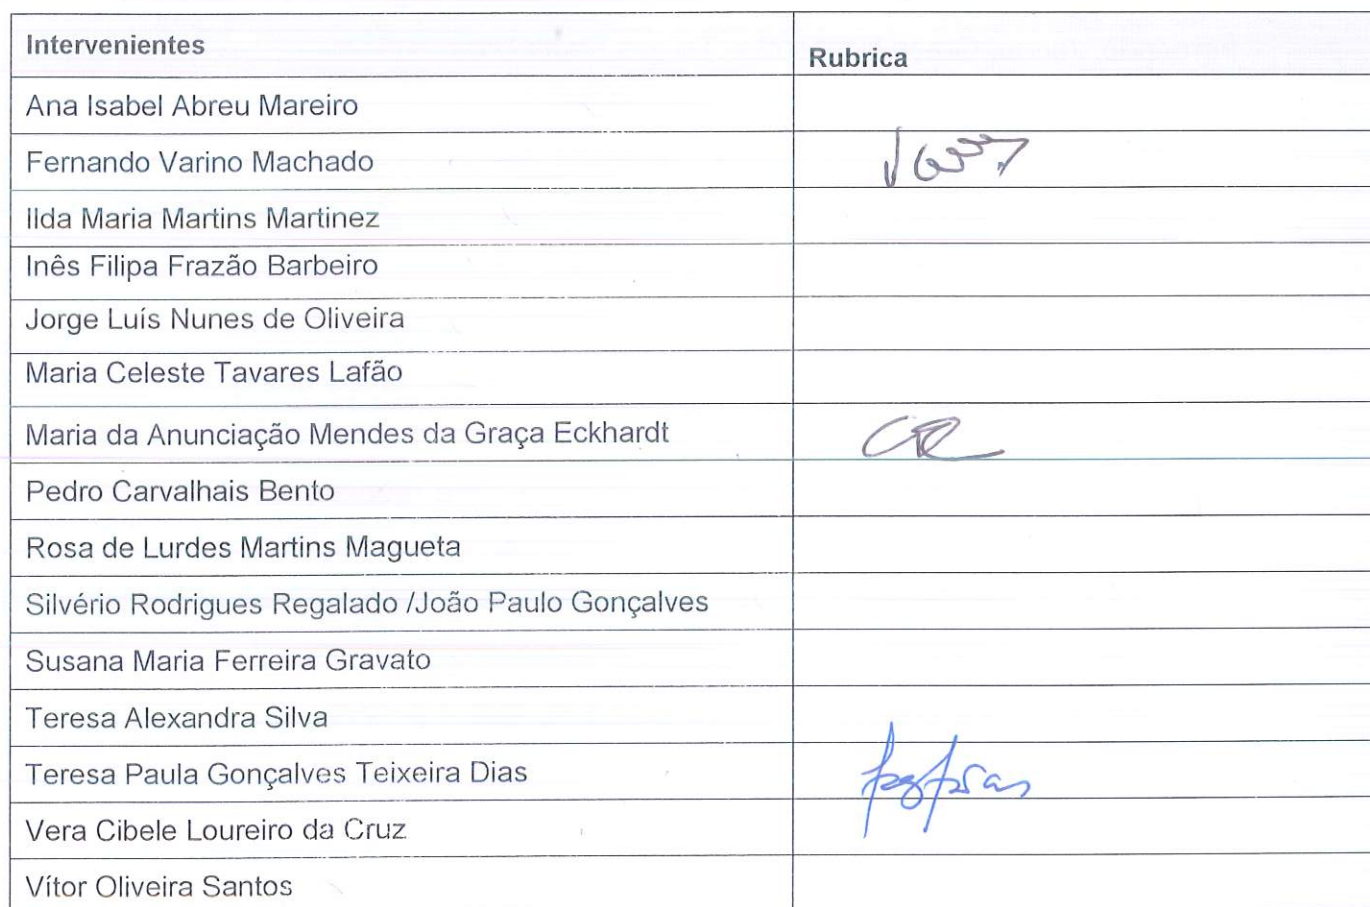 Intervenientes
Rubrica
Ana Isabel Abreu Mareiro
Fernando Varino Machado
Ilda Maria Martins Martinez
Inês Filipa Frazão Barbeiro
Jorge Luís Nunes de Oliveira
Maria Celeste Tavares Lafão
Maria da Anunciação Mendes da Graça Eckhardt
Pedro Carvalhais Bento
Rosa de Lurdes Martins Magueta
Silvério Rodrigues Regalado /João Paulo Gonçalves
Susana Maria Ferreira Gravato
Teresa Alexandra Silva
Teresa Paula Gonçalves Teixeira Dias
Vera Cibele Loureiro da Cruz
Vítor Oliveira Santos